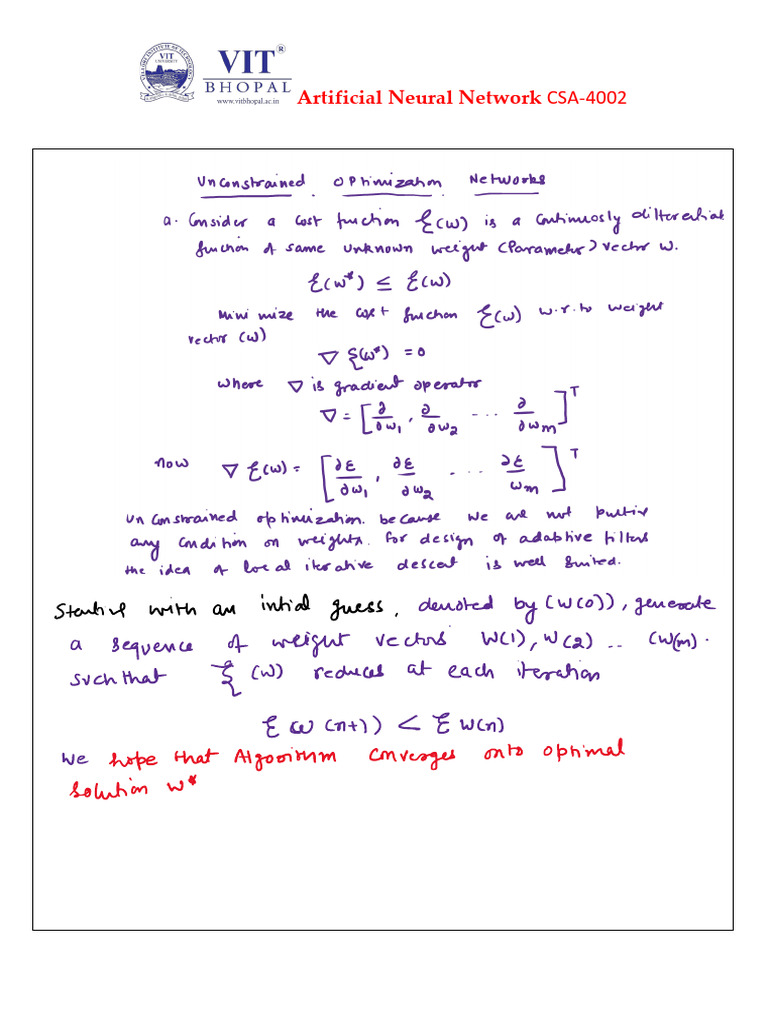 VIT®
BHOPAL
www.vitbhopal.ac.in
VIT
UNIVERSITY
Artificial Neural Network CSA-4002
Unconstrained Optimization Networks
a. Consider a cost function ξ(w) is a continuosly differentiable
function of same unknown weight (Parameter) vector w.
ξ(w*) ≤ ξ(w)
Minimize the cost function ξ(w) w.r.to weight
vector (w)
∇ ξ(w*) = 0
where ∇ is gradient operator
∇ = [∂/∂w1, ∂/∂w2 --- ∂/∂wm]T
now ∇ ξ(w) = [∂ξ/∂w1, ∂ξ/∂w2 --- ∂ξ/wm]T
unconstrained optimization. because we are not
any condition on weights. for design of adaptive filters
the idea of local iterative descent is well suited.
with an intial guess, denoted by (w(0)), generate
a sequence of weight vectors W(1), W(2) .. (W(m).
such that ξ(w) reduces at each iteration
ξ(w(n+1)) < ξ w(n)
We hope that Algorithm converges onto optimal
solution w*